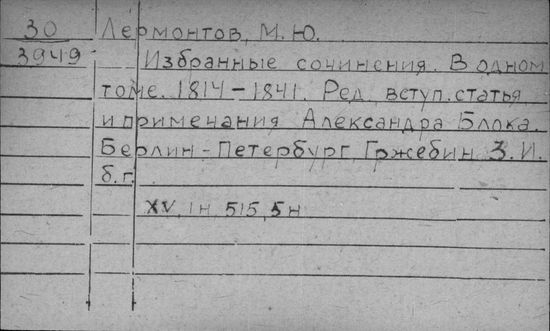 30 Лермонтов, М.Ю.
3949 Избранные сочинения. В одном
томе. 1814-1841. Ред., вступ. статья
и примечания Александра Блока.
Берлин-Петербург, Гржебин З.И.
б.г.
XV, 1н, 515, 5н